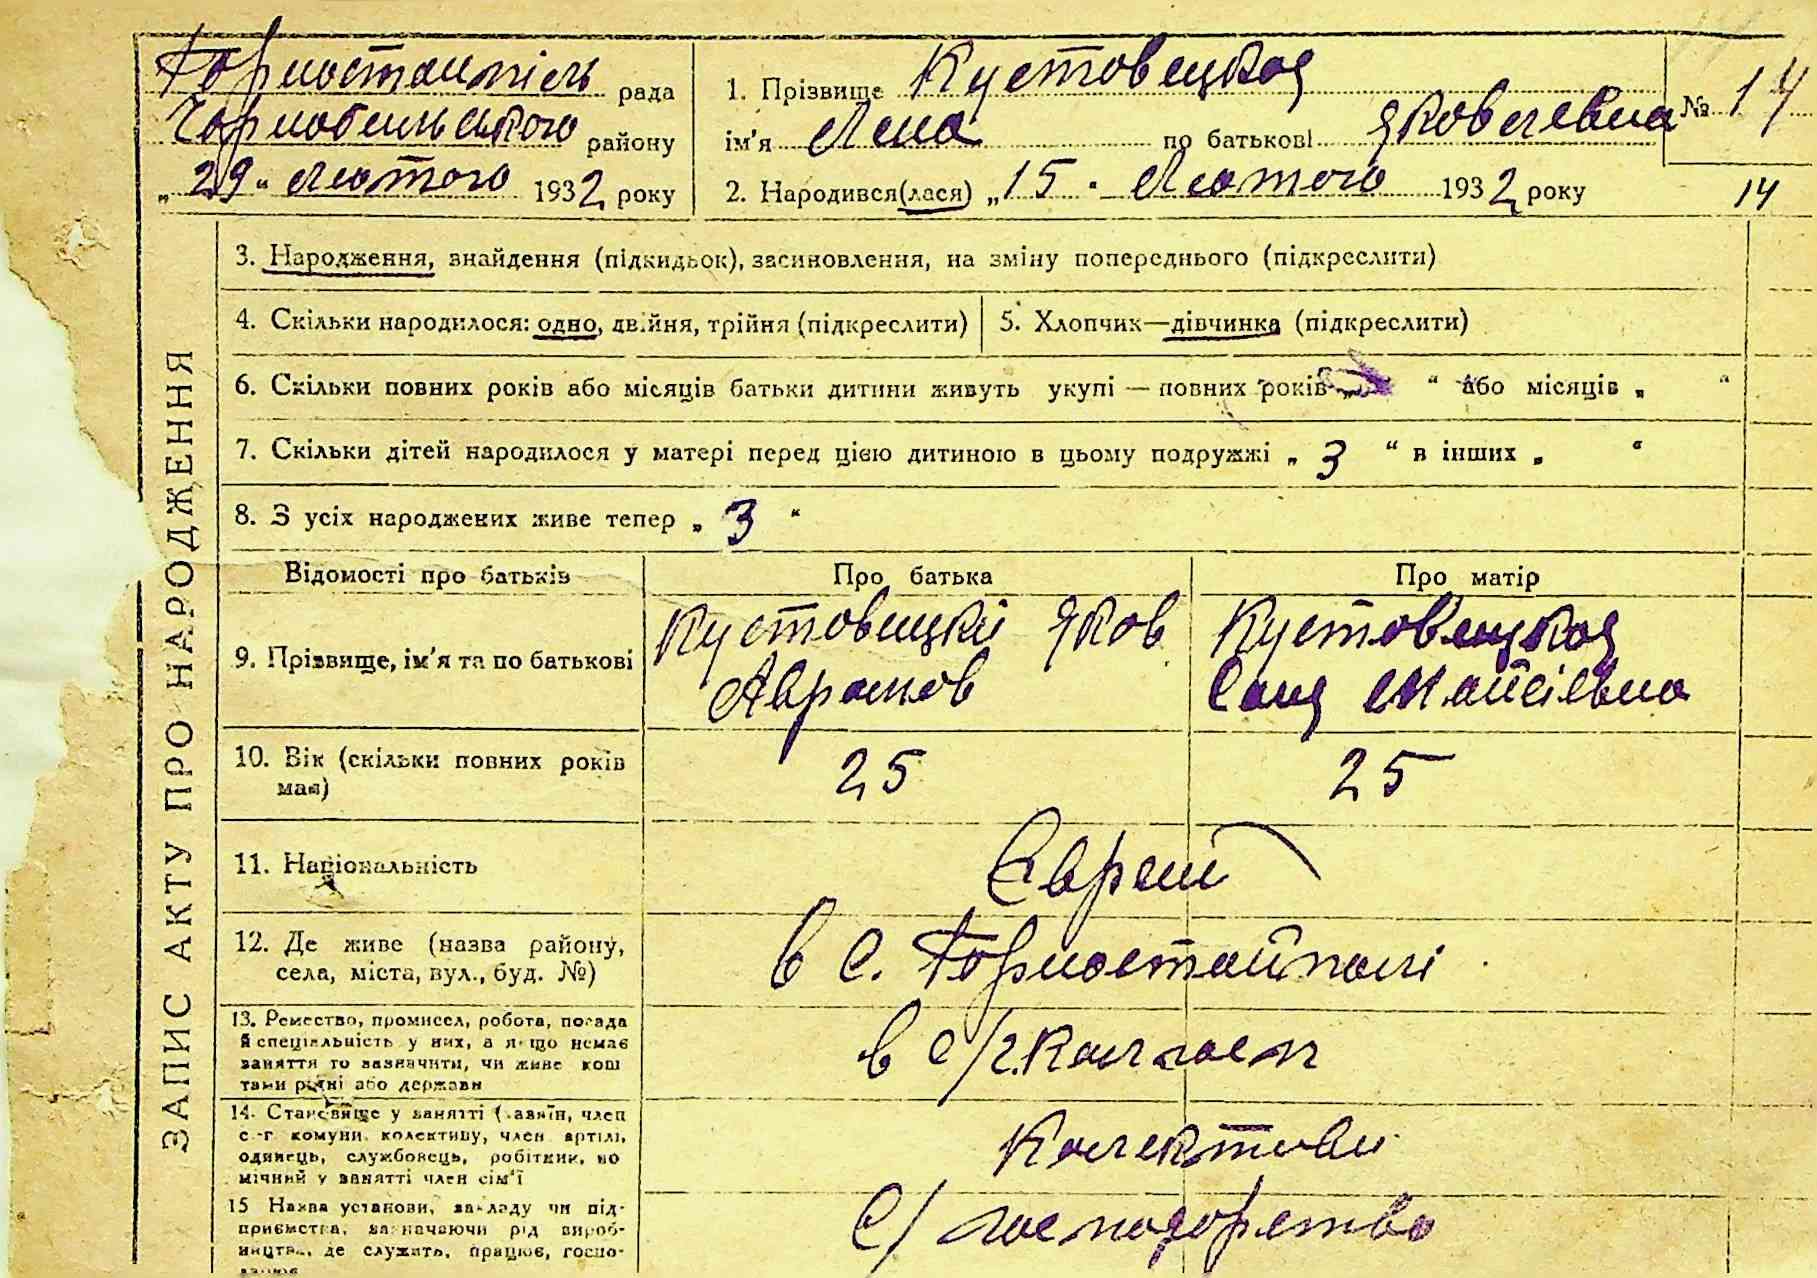 Горностайпіль рада
Чорнобильського району
„29“ Лютого 1932 року
1. Прізвище Кустовецкая
ім'я Лиа по батькові Яковлевна
№ 14
2. Народився(лася) „15“ Лютого 1932 року
14
ЗАПИС АКТУ ПРО НАРОДЖЕННЯ
3. Народження, знайдення (підкидьок), засиновлення, на зміну попереднього (підкреслити)
4. Скільки народилося: одно, двійня, трійня (підкреслити)
5. Хлопчик—дівчинка (підкреслити)
6. Скільки повних років або місяців батьки дитини живуть укупі — повних років „ “ або місяців „ “
7. Скільки дітей народилося у матері перед цією дитиною в цьому подружжі „ 3 “ в інших „ “
8. З усіх народжених живе тепер „ 3 “
Відомості про батьків
Про батька
Про матір
9. Прізвище, ім'я та по батькові
Кустовецкий Яков
Аврамов
Кустовецкая
Соня Мойсіевна
10. Вік (скільки повних років
має)
25
25
11. Національність
Євреї
12. Де живе (назва району,
села, міста, вул., буд. №)
в с. Горностайполі
13. Ремество, промисел, робота, посада
й спеціяльність у них, а якщо немає
заняття то зазначити, чи живе кош
тами рідні або держави
в с/г.
14. Становище у занятті (хазяїн, член
с.-г комуни колективу, член артілі,
одинець, службовець, робітник, по
мічний у занятті член сім'ї
Колективі
15 Назва установи, закладу чи під-
приємства, зазначаючи рід вироб-
ництва, де служить, працює, госпо-
с/ господарство